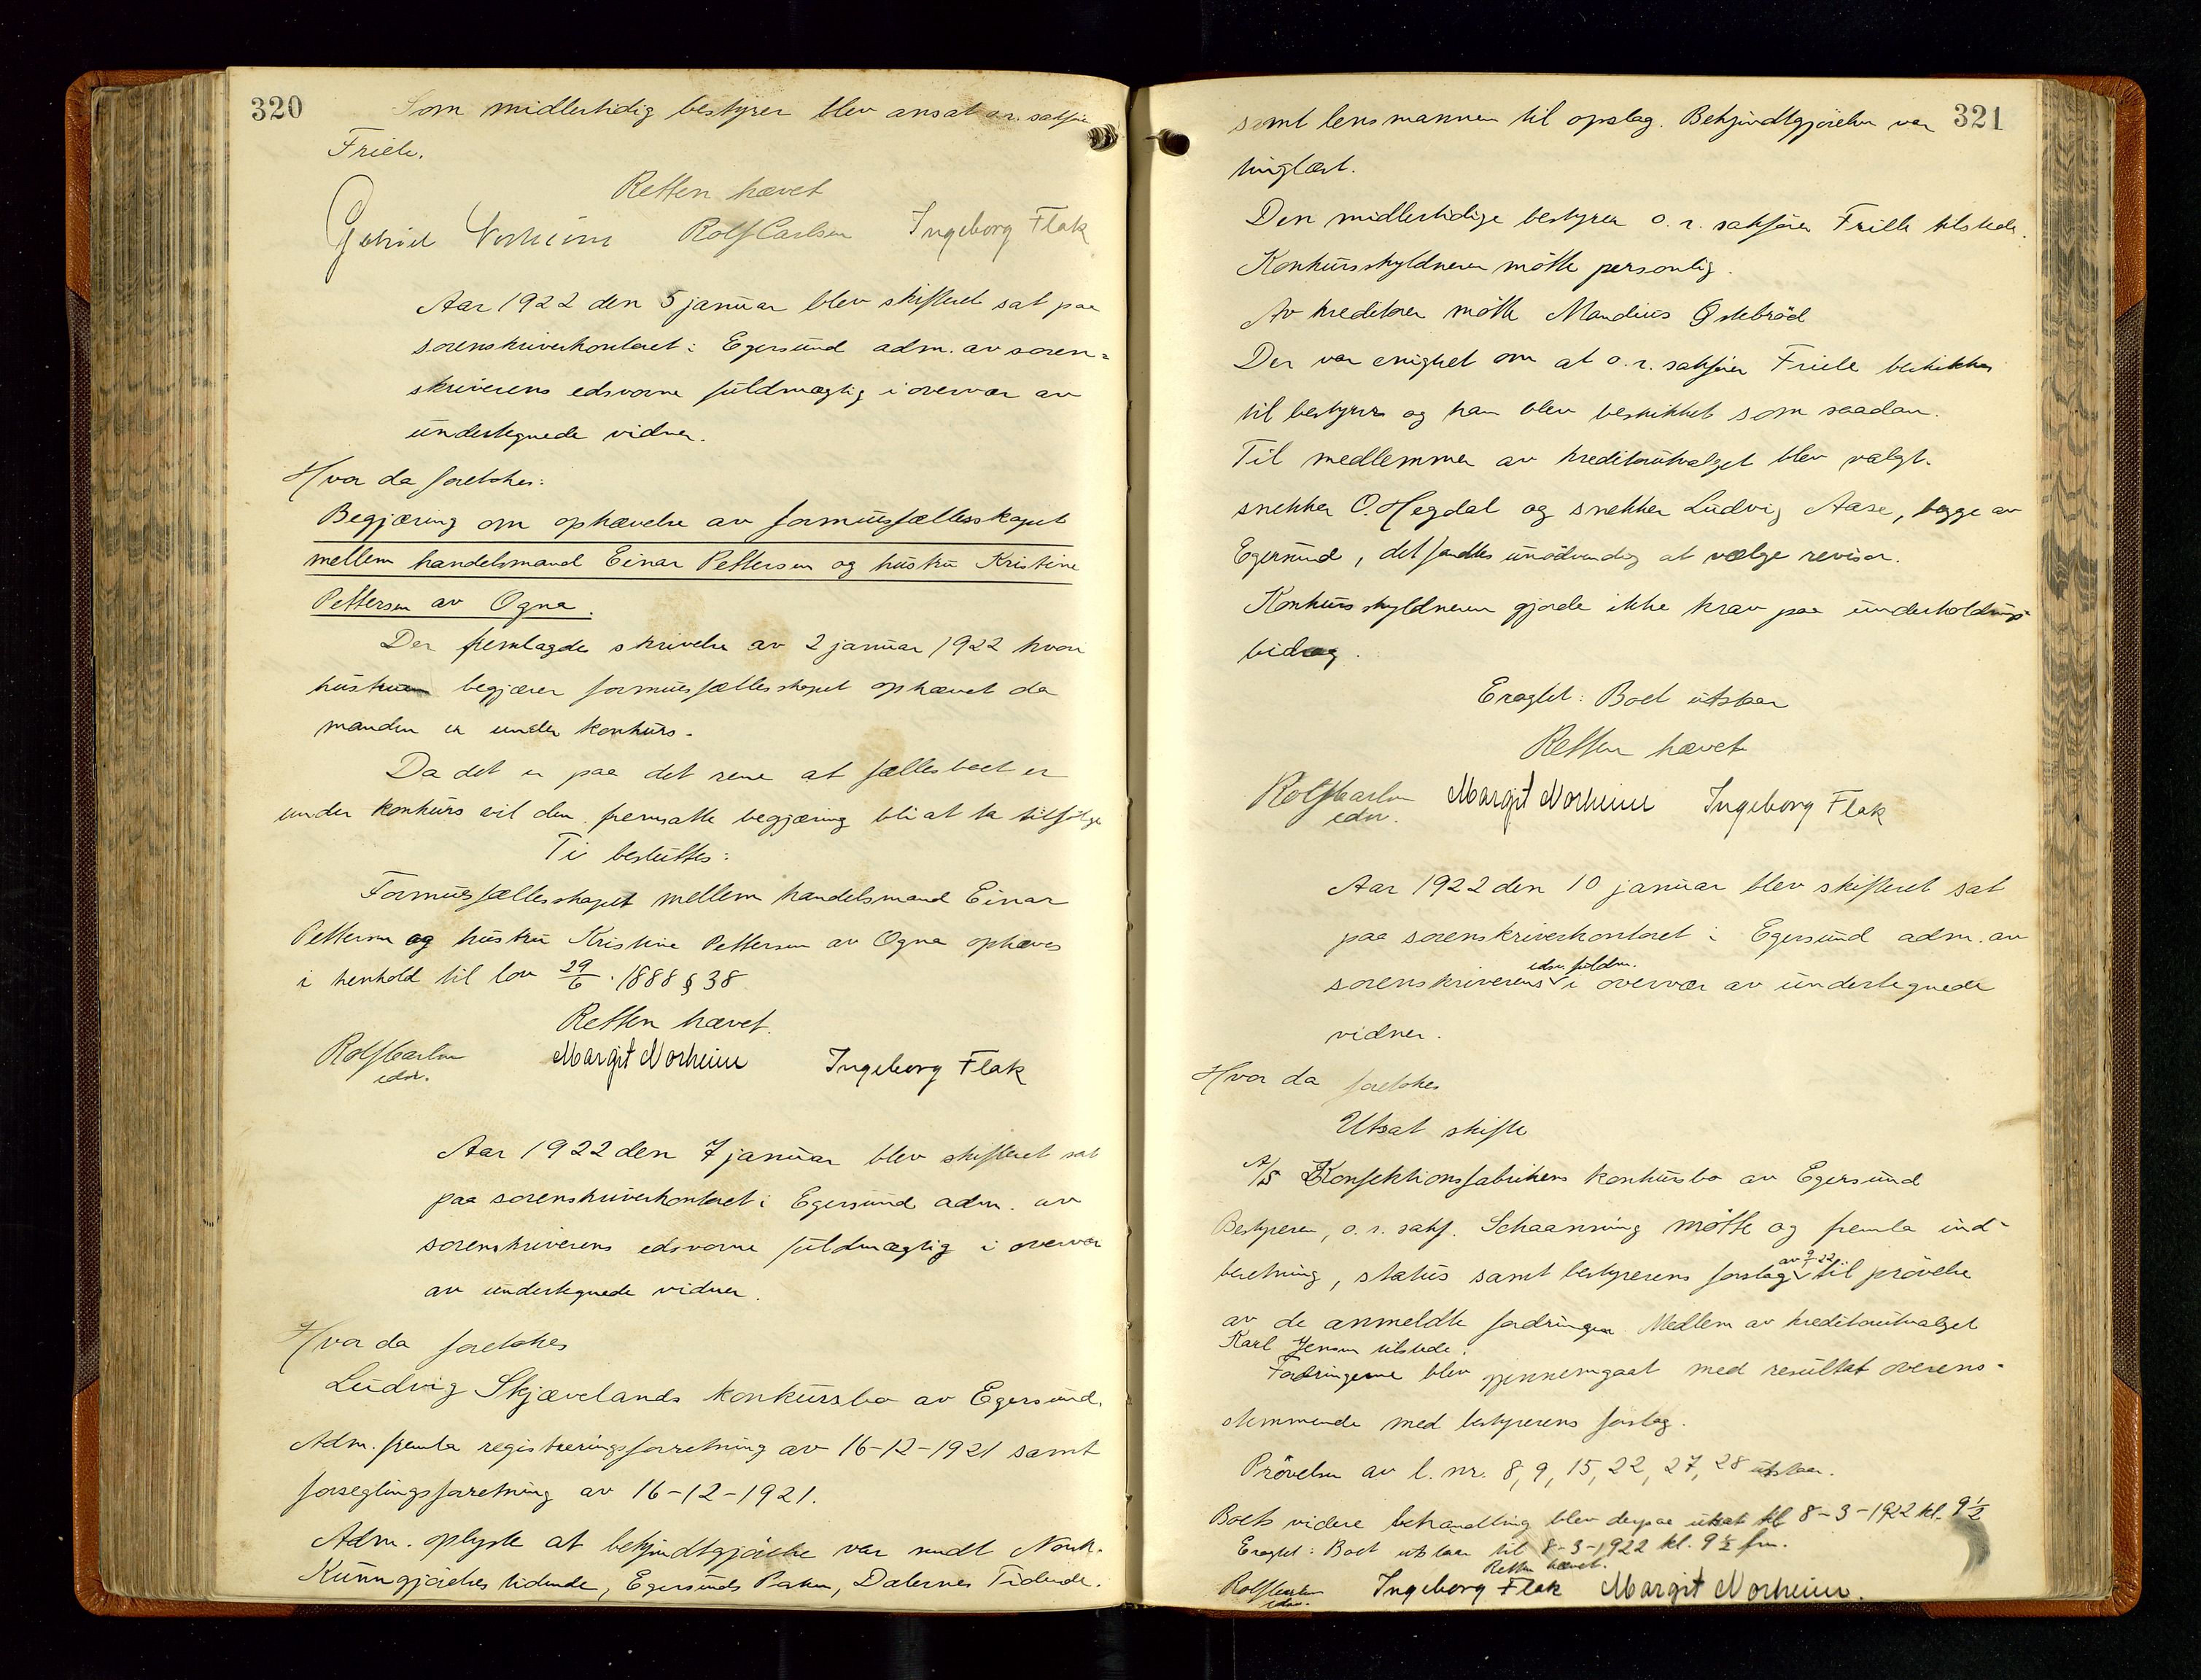 320
Som midlertidig bestyrer blev ansat o.r. sakfører
Friele.
Retten hævet
Gabriel Norheim Rolf Carlsen Ingeborg Flak
Aar 1922 den 5 januar blev skifteret sat paa
sorenskriverkontoret i Egersund adm. av soren-
skriverens edsvorne fuldmægtig i overvær av
undertegnede vidner.
Hvor da foretokes:
Begjæring om ophævelse av formuesfællesskapet
mellem handelsmand Einar Pettersen og hustru Kristine
Pettersen av Ogna.
Der fremlagdes skrivelse av 2 januar 1922 hvori
hustruen begjærer formuesfællesskapet ophævet da
manden er under konkurs.
Da det er paa det rene at fællesboet er
under konkurs vil den fremsatte begjæring bli at ta tilfølge
Ti besluttes:
Formuesfællesskapet mellem handelsmand Einar
Pettersen og hustru Kristine Pettersen av Ogna ophæves
i henhold til lov 29/6 1888 § 38
Retten hævet.
Rolf Carlsen Margit Norheim Ingeborg Flak
edsv.
Aar 1922 den 7 januar blev skifteret sat
paa sorenskriverkontoret i Egersund adm. av
sorenskriverens edsvorne fuldmægtig i overvær
av undertegnede vidner.
Hvor da foretokes
Ludvig Skjævelands konkursbo av Egersund.
Adm. fremla registreringsforretning av 16-12-1921 samt
forseglingsforretning av 16-12-1921.
Adm. oplyste at bekjendtgjørelse var sendt Norsk.
Kunngjørelses tidende, Egersunds Posten, Dalernes Tidende.
321
samt lensmannen til opslag. Bekjendtgjørelsen var
tinglæst.
Den midlertidige bestyrer o.r. sakfører Friele tilstede.
Konkursskyldneren møtte personlig.
Av kreditorer møtte Mandius Østebrød
Der var enighet om at o.r. sakfører Friele beskikkes
til bestyrer og han blev beskikket som saadan.
Til medlemmer av kreditorutvalget blev valgt.
snekker O. Hegdal og snekker Ludvig Aase, begge av
Egersund, det fandtes unødvendig at vælge revisor.
Konkursskyldneren gjorde ikke krav paa underholdnings-
bidrag.
Eragtet: Boet utstaar
Retten hævet
Rolf Carlsen Margit Norheim Ingeborg Flak
edsv.
Aar 1922 den 10 januar blev skifteret sat
paa sorenskriverkontoret i Egersund adm. av
edsv. fuldm.
sorenskriverens i overvær av undertegnede
vidner.
Hvor da foretokes
Utsat skifte
A/S Konfektionsfabrikens konkursbo av Egersund
Bestyreren, o.r. sakf. Schaanning møtte og fremla ind-
av 9-22
beretning, status samt bestyrerens forslag til prøvelse
av de anmeldte fordringer. Medlem av kreditorutvalget
Karl Jensen tilstede.
Fordringerne blev gjennemgaat med resultat overens-
stemmende med bestyrerens forslag.
Prøvelsen av l. nr. 8, 9, 15, 22, 27, 28 utstaar.
Boets videre behandling blev derpaa utsat til 8-3-1922 kl. 9 1/2
Eragtet: Boet utstaar til 8-3-1922 kl. 9 1/2 fm.
Retten hævet.
Rolf Carlsen Ingeborg Flak Margit Norheim.
edsv.